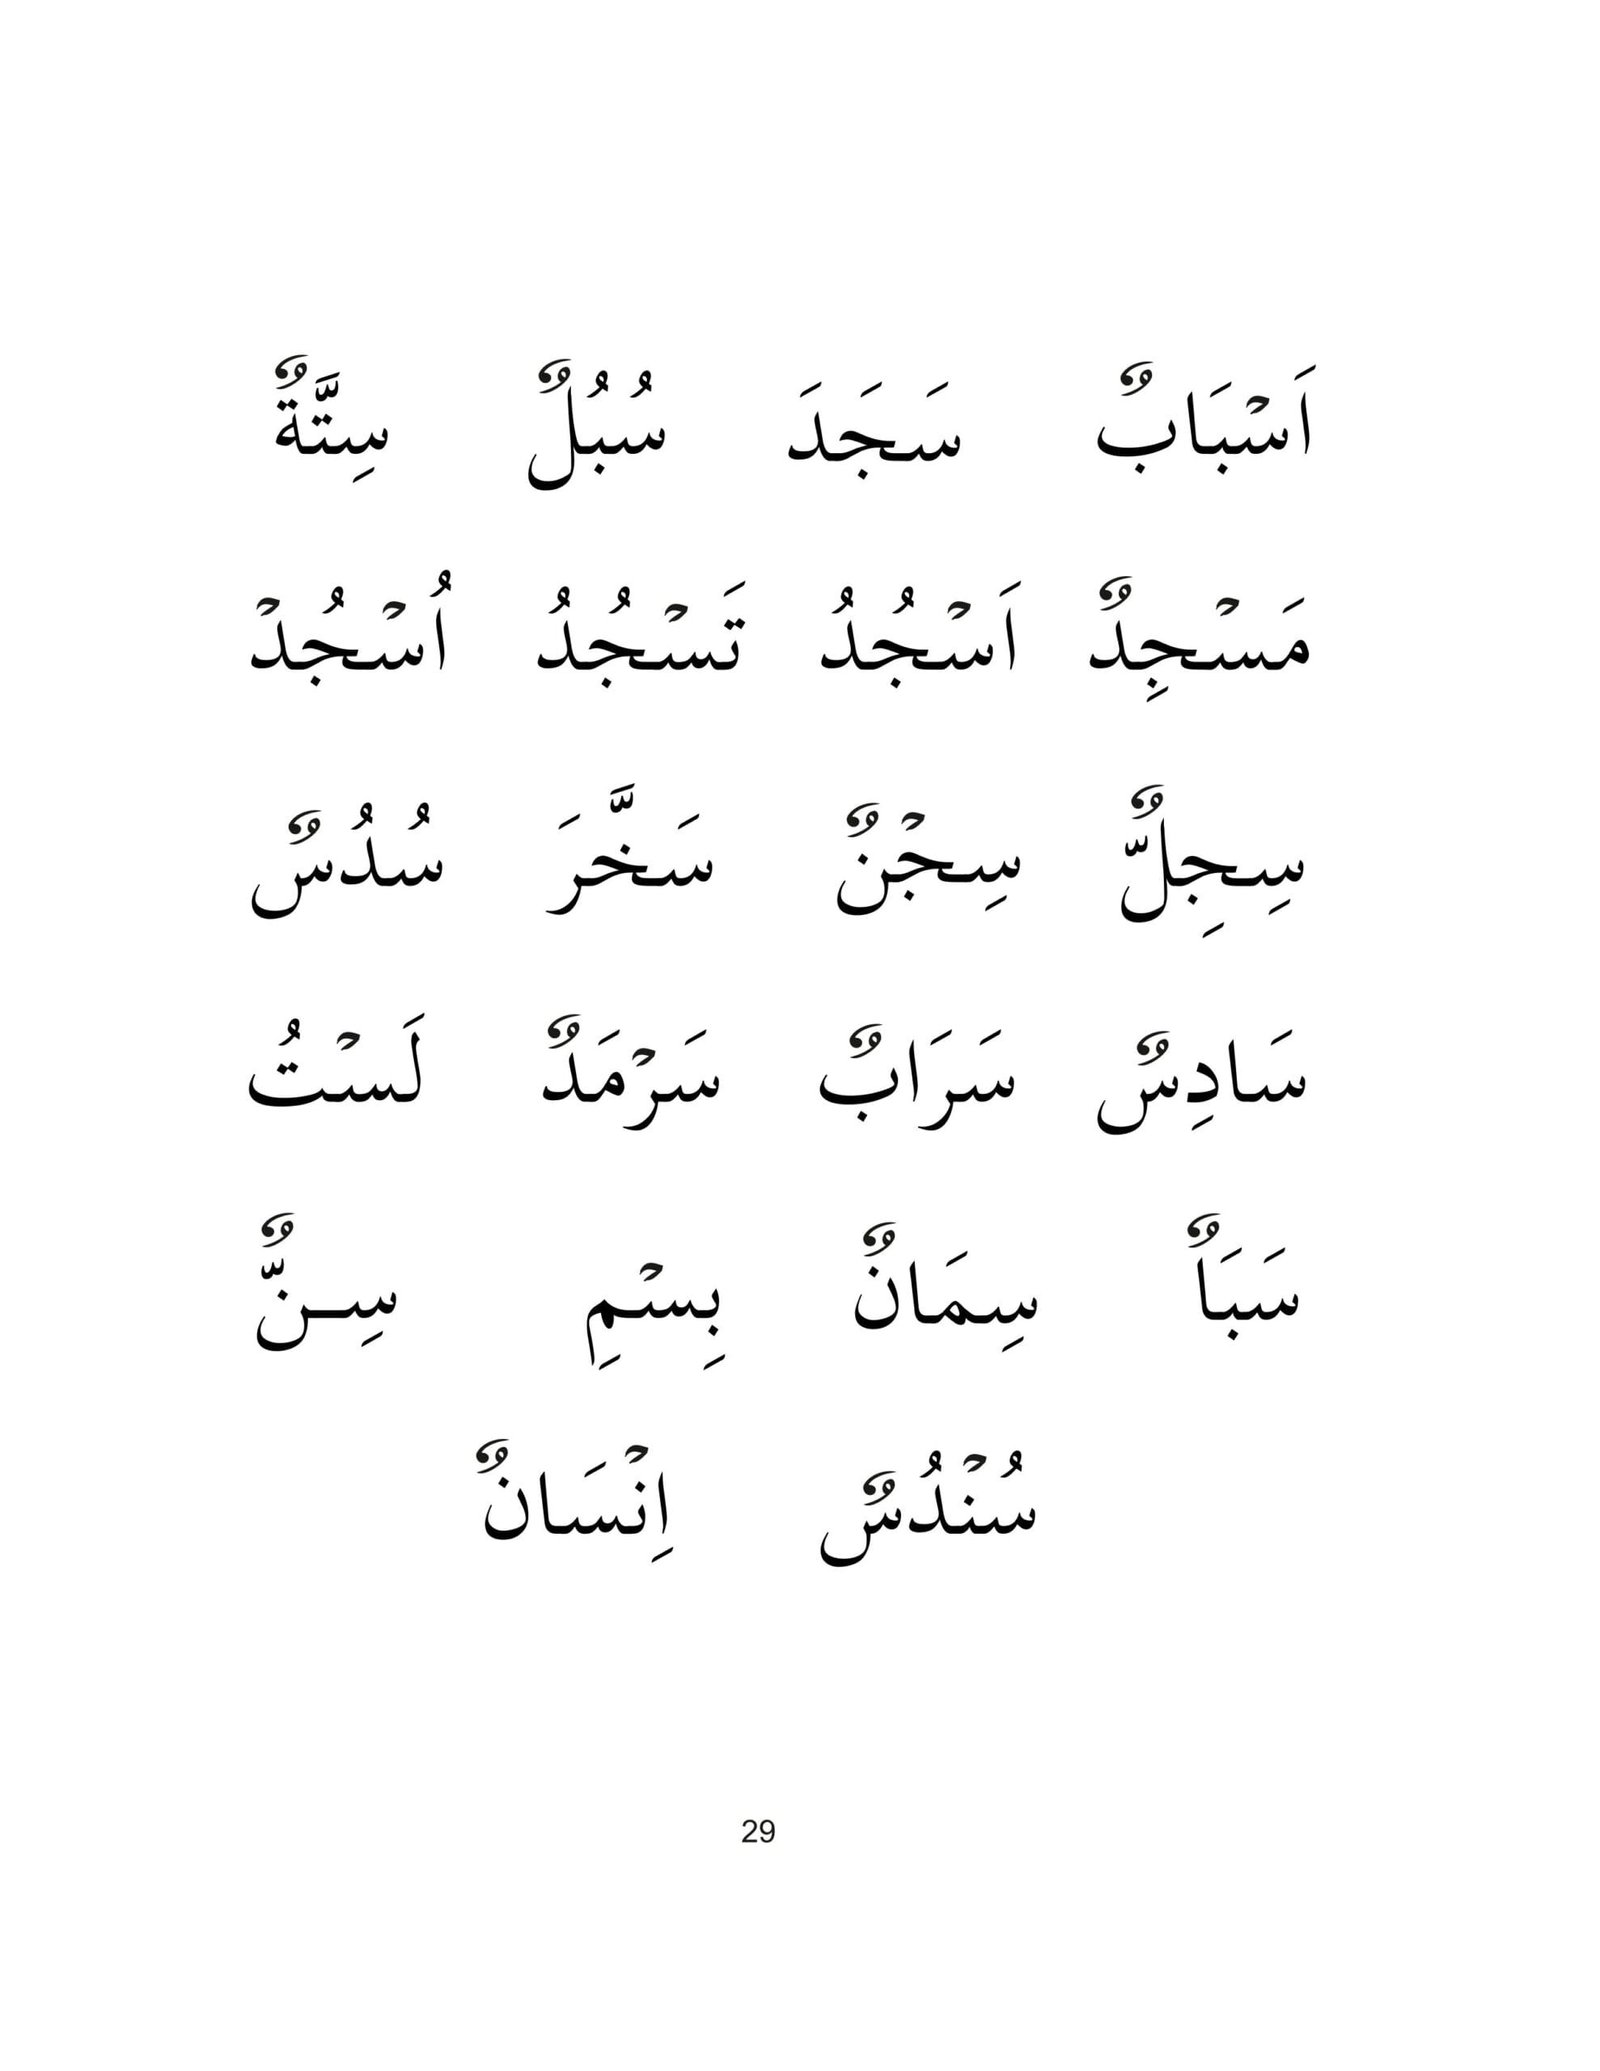 اَسْبَابٌ سَجَدَ سُبُلٌ سِتَّةٌ
مَسْجِدٌ اَسْجُدُ تَسْجُدُ اُسْجُدْ
سِجِلٌّ سِجْنٌ سَخَّرَ سُدُسٌ
سَادِسٌ سَرَابٌ سَرْمَدٌ لَسْتُ
سَبَاٌ سِمَانٌ بِسْمِ سِنٌّ
سُنْدُسٌ اِنْسَانٌ
29